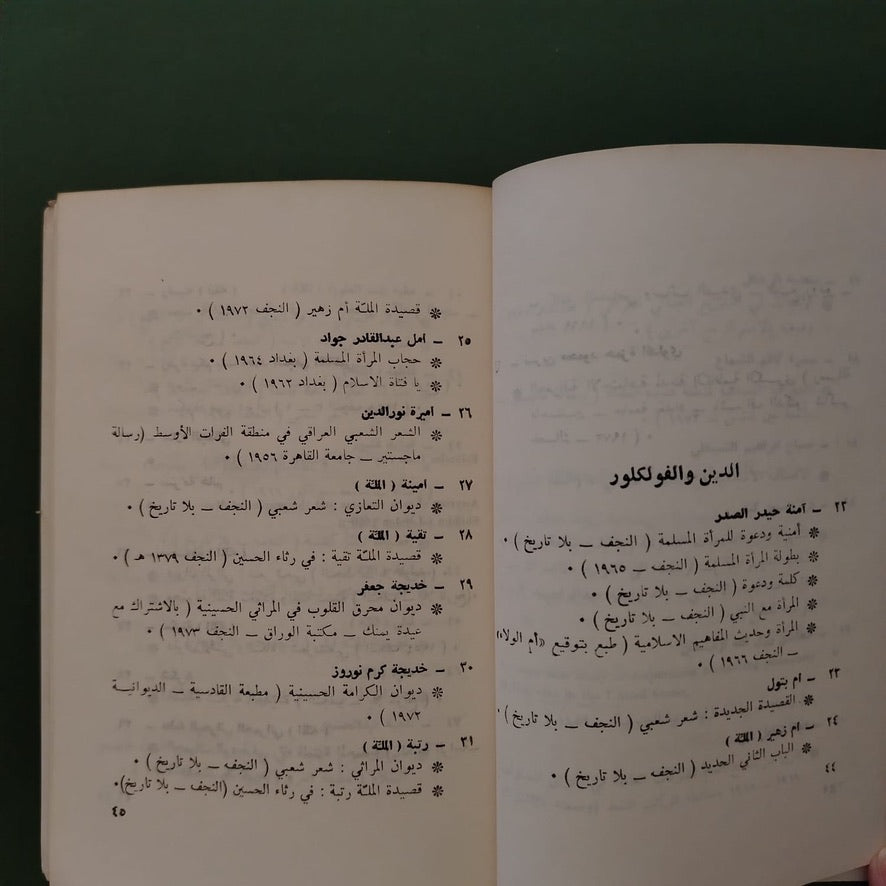 الدين والفولكلور
٢٢ – آمنة حيدر الصدر
* أمنية ودعوة للمرأة المسلمة ( النجف – بلا تاريخ ) ٠
* بطولة المرأة المسلمة ( النجف – ١٩٦٥ ) ٠
* كلمة ودعوة ( النجف – بلا تاريخ ) ٠
* المرأة مع النبي ( النجف – بلا تاريخ ) ٠
* المرأة وحديث المفاهيم الاسلامية ( طبع بتوقيع «أم الولاء»
– النجف ١٩٦٦ ) ٠
٢٣ – ام بتول
* القصيدة الجديدة : شعر شعبي ( النجف – بلا تاريخ ) ٠
٢٤ – ام زهير ( الملة )
* الباب الثاني الجديد ( النجف – بلا تاريخ ) ٠
٤٤
* قصيدة الملّة أم زهير ( النجف ١٩٧٢ ) ٠
٢٥ – امل عبدالقادر جواد
* حجاب المرأة المسلمة ( بغداد ١٩٦٤ ) ٠
* يا فتاة الاسلام ( بغداد ١٩٦٢ ) ٠
٢٦ – اميرة نورالدين
* الشعر الشعبي العراقي في منطقة الفرات الأوسط (رسالة
ماجستير – جامعة القاهرة ١٩٥٦ ) ٠
٢٧ – امينة ( الملة )
* ديوان التعازي : شعر شعبي ( النجف – بلا تاريخ ) ٠
٢٨ – تقية ( الملة )
* قصيدة الملّة تقية : في رثاء الحسين ( النجف ١٣٧٩ هـ ) ٠
٢٩ – خديجة جعفر
* ديوان محرق القلوب في المراثي الحسينية ( بالاشتراك مع
عبدة يمنك – مكتبة الوراق – النجف ١٩٧٣ ) ٠
٣٠ – خديجة كرم نوروز
* ديوان الكرامة الحسينية ( مطبعة القادسية – الديوانية
١٩٧٢ ) ٠
٣١ – رتبة ( الملة )
* ديوان المراثي : شعر شعبي ( النجف – بلا تاريخ ) ٠
* قصيدة الملّة رتبة : في رثاء الحسين (النجف – بلا تاريخ)٠
٤٥